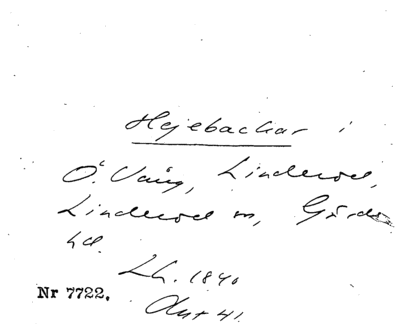 Hejebackar i
Ö. Vång, Linderöd,
Linderöd sn, Gärds
hd.
Lh. 1840
Akt 41.
Nr 7722.